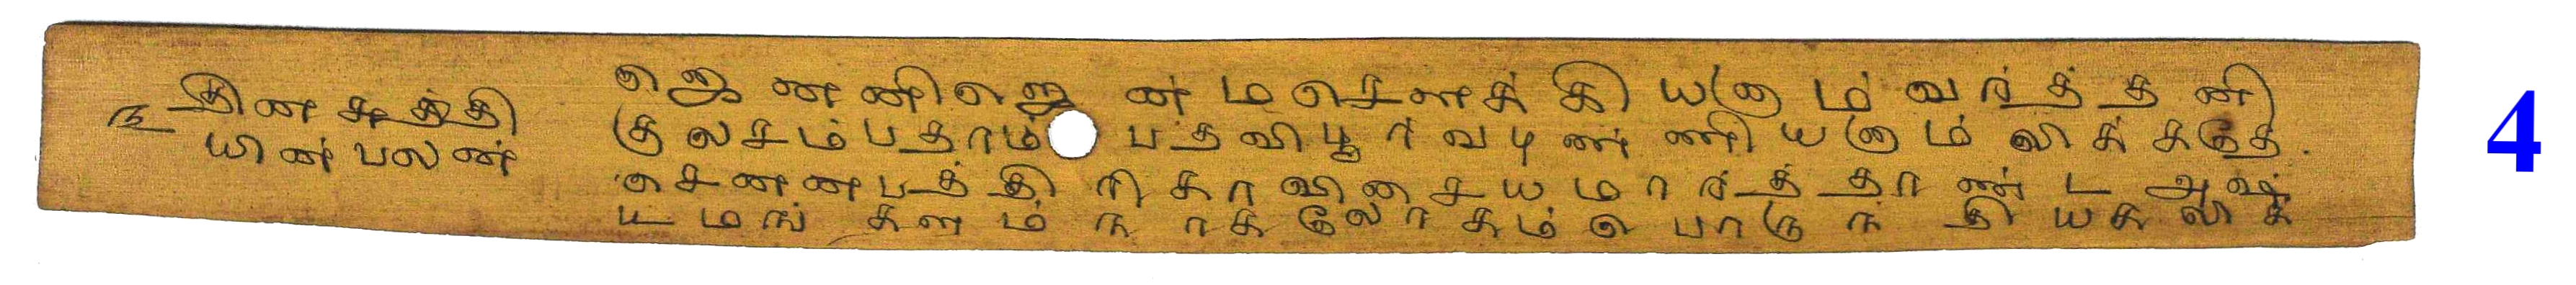 ௩ தின சுத்தி
யின் பலன்
ஜெனனிஜென்ம சௌக்கியனம் வர்த்தனி
குலசம்பதாம் பதவிபூர்வ புண்ணியனம் லிக்கதே
சென்னபத்திரிகா விசைய மார்த்தாண்ட
யமங்களம் நாகலோகம் பொருந்திய கலிக
4